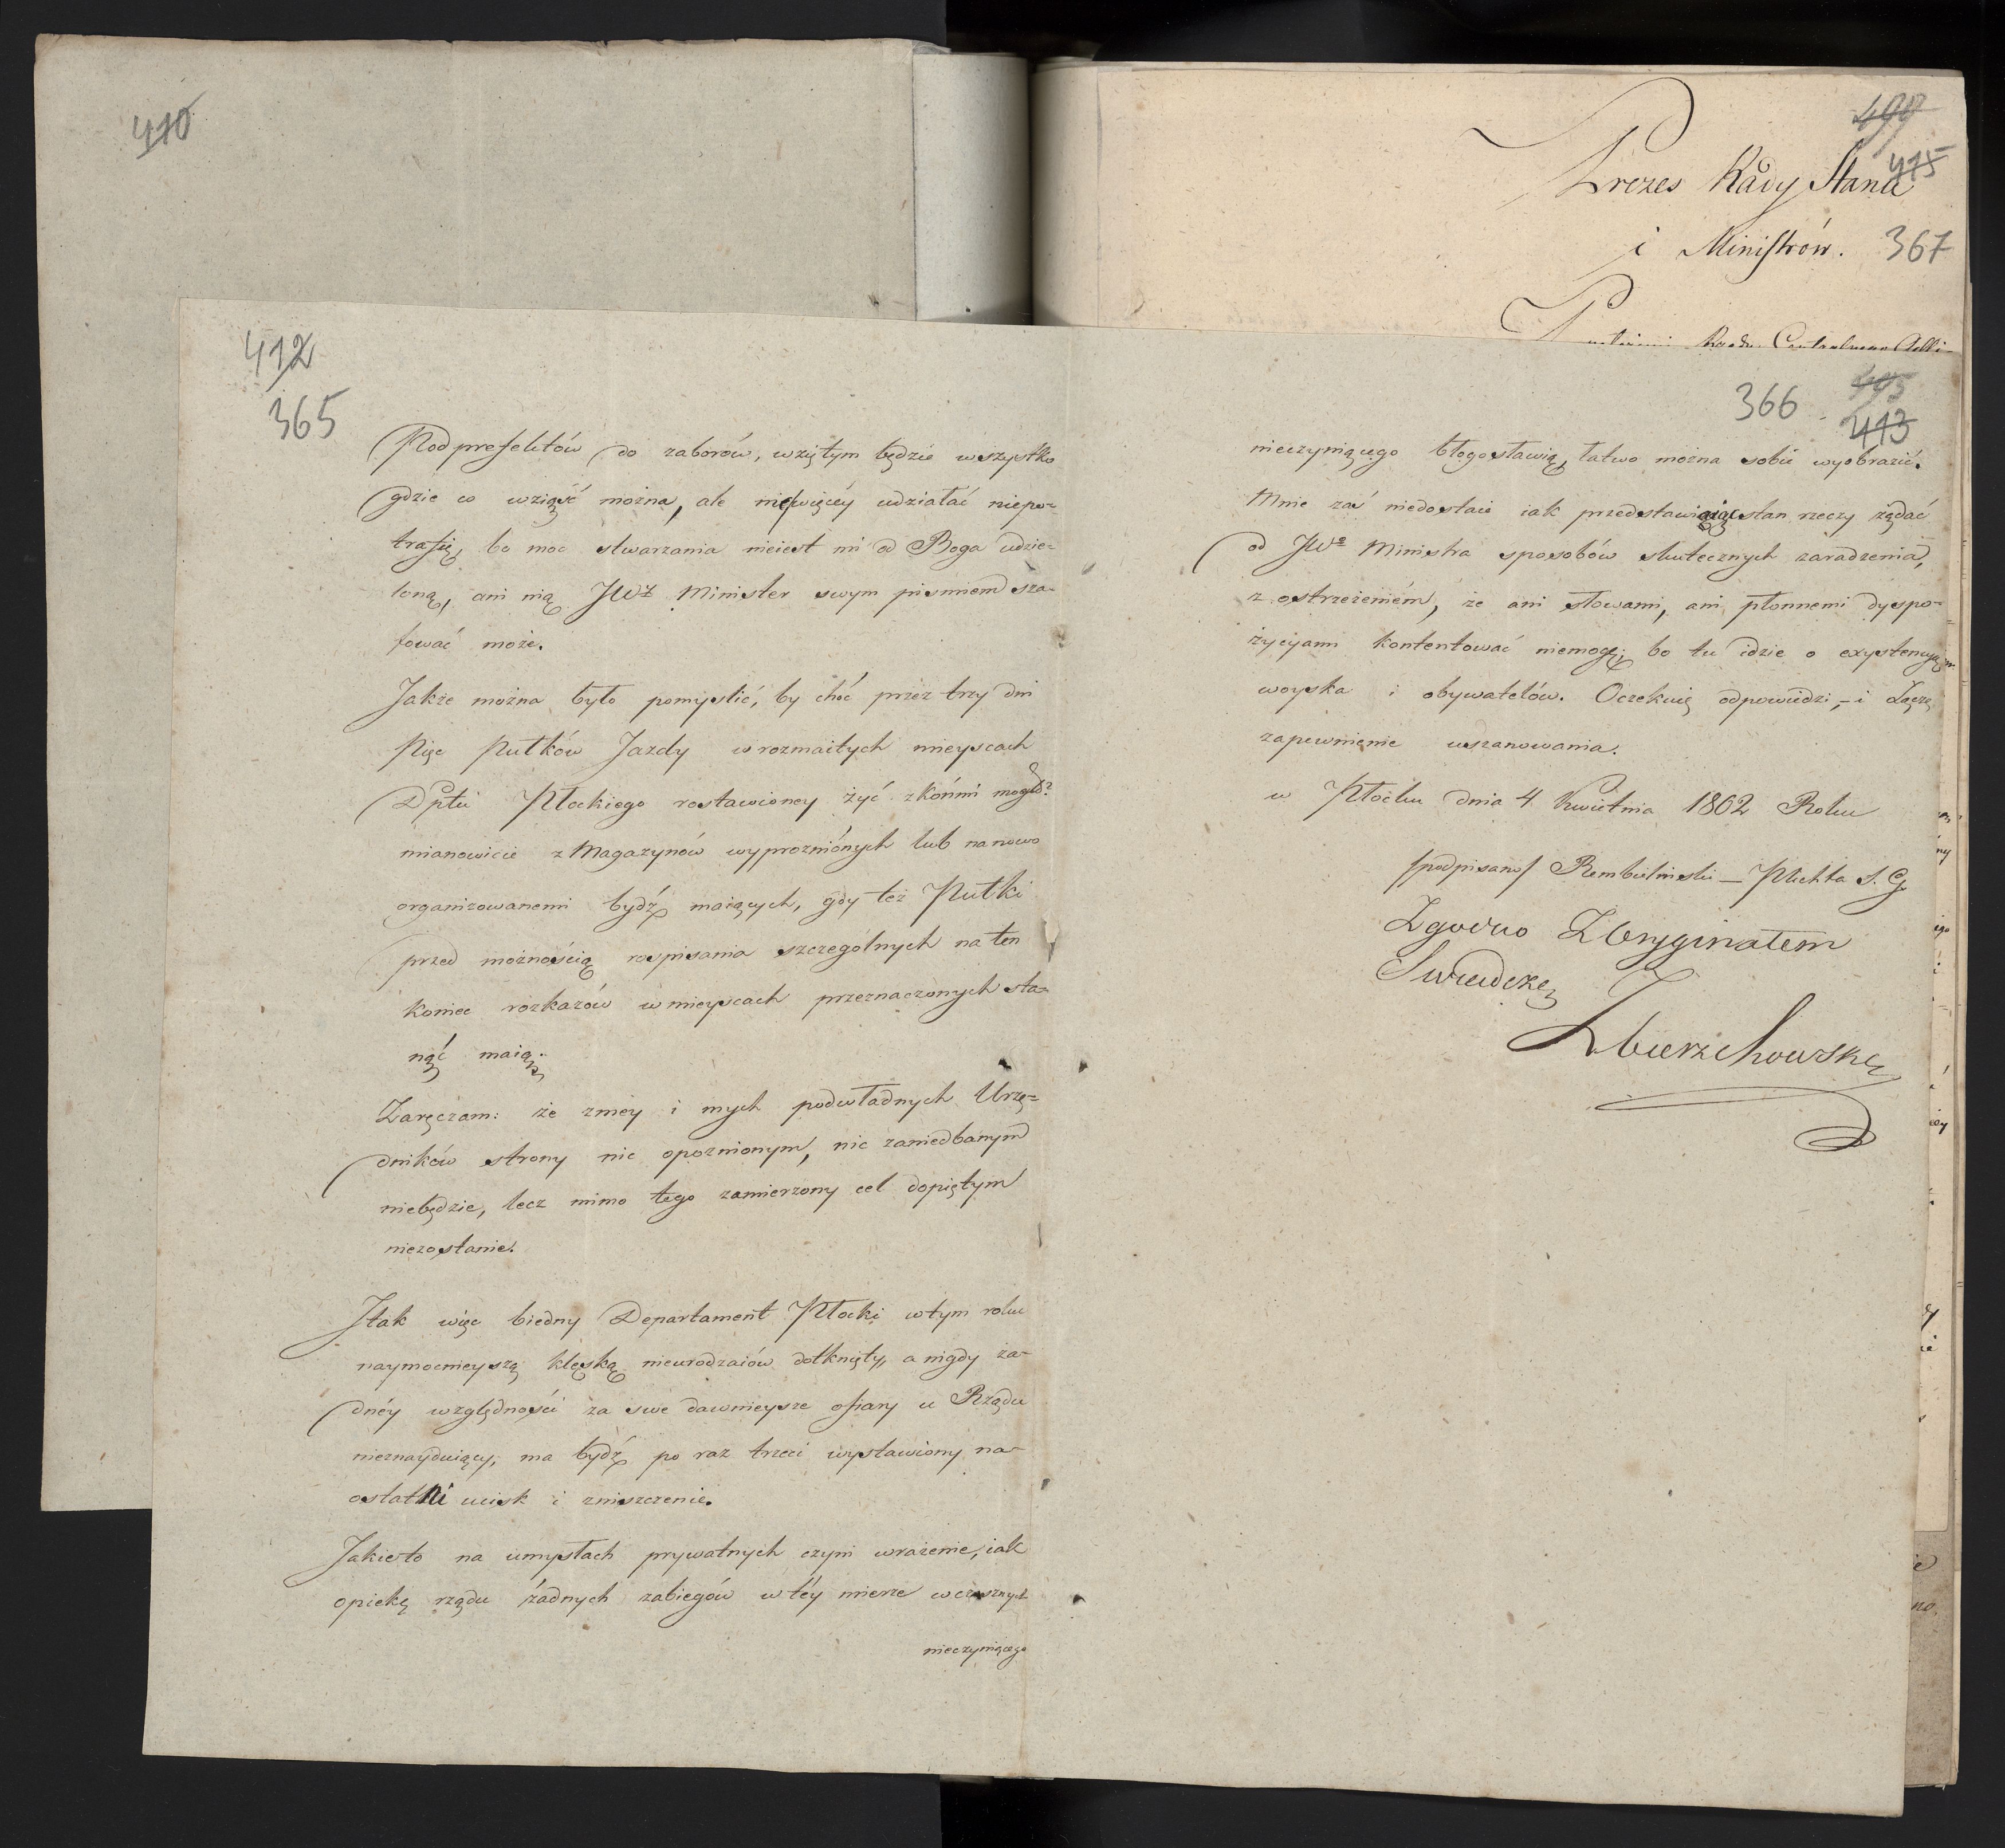 410
490
415
Prezes Rady Stanu
i Ministrów. 367
412
365
Podprefektów do zaborów, wziętym będzie wszystko
gdzie co wziąść można, ale niewięcéy udziałać niepo-
trafię, bo moc stwarzania nieiest mi od Boga udzie-
loną, ani nią JWż Minister swym pismiem sza-
fować może.
Jakże można było pomyslić, by choć przez trzy dni
Pięc Pułków Jazdy w rozmaitych mieyscach
Dptu Płockiego rostawioney żyć z końmi mogło?
mianowicie z Magazynów wyprożniónych lub na nowo
organizowanemi bydź maiących, gdy też Pułki
przed możnością rospisania szczególnych na ten
koniec rozkazów w mieyscach przeznaczonych sta-
nąć maią.
Zaręczam: że zmey i mych podwładnych Urzę=
dników strony nic opoznionym, nic zaniedbanym
niebędzie, lecz mimo tego zamierzony cel dopiętym
niezostanie.
Jtak więc biedny Departament Płocki wtym roku
naymocnieyszą klęską nieurodzaiów dotknięty, a nigdy ża-
dnéy względności za swe dawnieysze ofiary u Rządu
nieznayduiący, ma bydź po raz trzeci wystawiony na-
ostatni ucisk i zniszczenie.
Jakieto na umysłach prywatnych czyni wrażenie, iak
opiekę rządu żadnych zabiegów w téy mierze wczesnych
nieczyniącego
366
413
nieczyniącego błogosławią, łatwo można sobie wyobrazić.
Mnie zaś niedostaie iak przedstawiaiąc stan rzeczy żądać
od JWo Ministra sposobów skutecznych zaradzenia,
z ostrzeżeniém, że ani słowami, ani płonnemi dyspo-
życyami kontentować niemogę; bo tu idzie o exystencyą
woyska i obywatelów. Oczekuię odpowiedzi, - i Łączę
zapewnienie uszanowania.
w Płocku dnia 4 Kwietnia 1812 Roku
/podpisano/ Rembielinski — Plichta S. G.
Zgodno Z Oryginałem
Swiadczę
Zbierzchowski